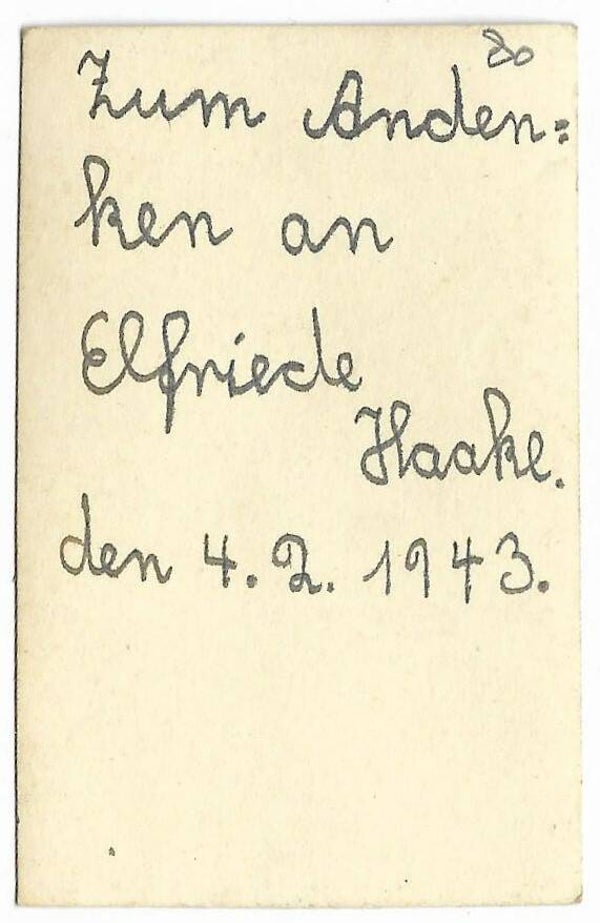 80
Zum Anden=
ken an
Elfriede
Haake.
den 4. 2. 1943.